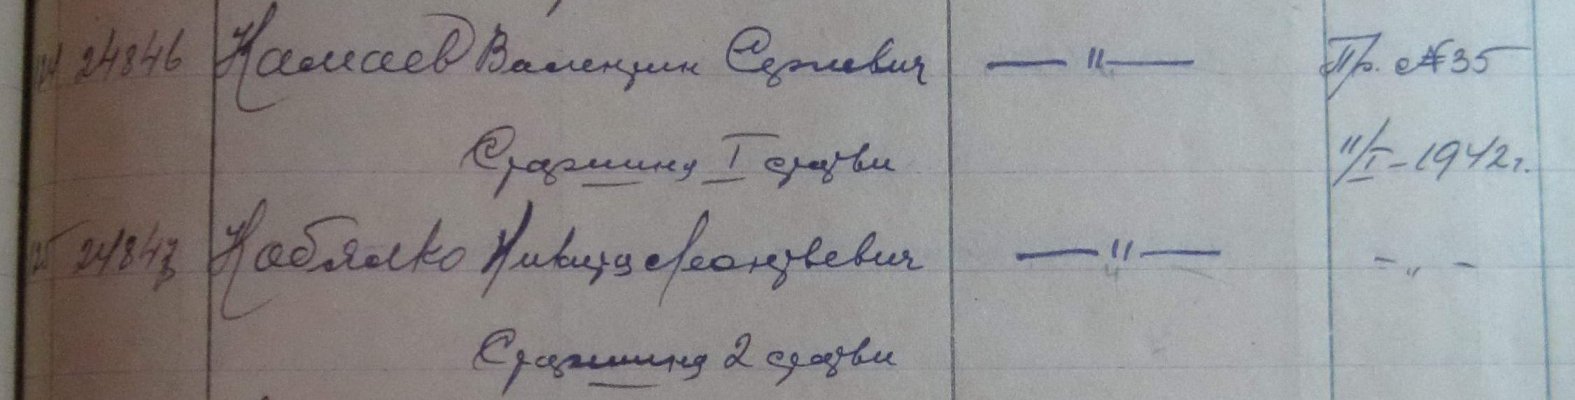 24846 Камаев Валентин Сергеевич — " — Пр. № 35
Старшина I статьи 11/I-1942г.
24847 Кобялко Никита Леонтьевич — " — - " -
Старшина 2 статьи